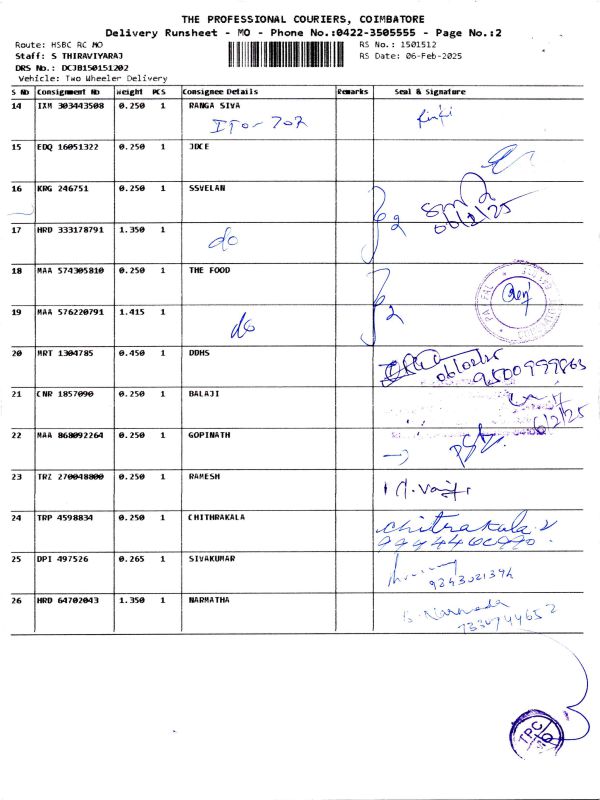 THE PROFESSIONAL COURIERS, COIMBATORE
Delivery Runsheet - MO - Phone No.:0422-3505555 - Page No.:2
Route: HSBC RC MO
RS No.: 1501512
Staff: S THIRAVIYARAJ
RS Date: 06-Feb-2025
DRS No.: DCJB150151202
Vehicle: Two Wheeler Delivery
S No Consignment No Weight PCS Consignee Details Remarks Seal & Signature
14 IXM 303443508 0.250 1 RANGA SIVA
15 EDQ 16051322 0.250 1 JDCE
16 KRG 246751 0.250 1 SSVELAN
06/2/25
17 HRD 333178791 1.350 1
do
2
18 MAA 574305810 0.250 1 THE FOOD
19 MAA 576220791 1.415 1
do
2
20 MRT 1304785 0.450 1 DDHS
06/02/25
9500999863
21 CNR 1857090 0.250 1 BALAJI
6/2/25
22 MAA 868092264 0.250 1 GOPINATH
23 TRZ 270048800 0.250 1 RAMESH
24 TRP 4598834 0.250 1 CHITHRAKALA
Chitrakala.V
25 DPI 497526 0.265 1 SIVAKUMAR
26 HRD 64702043 1.350 1 NARMATHA
7330744652
TPC